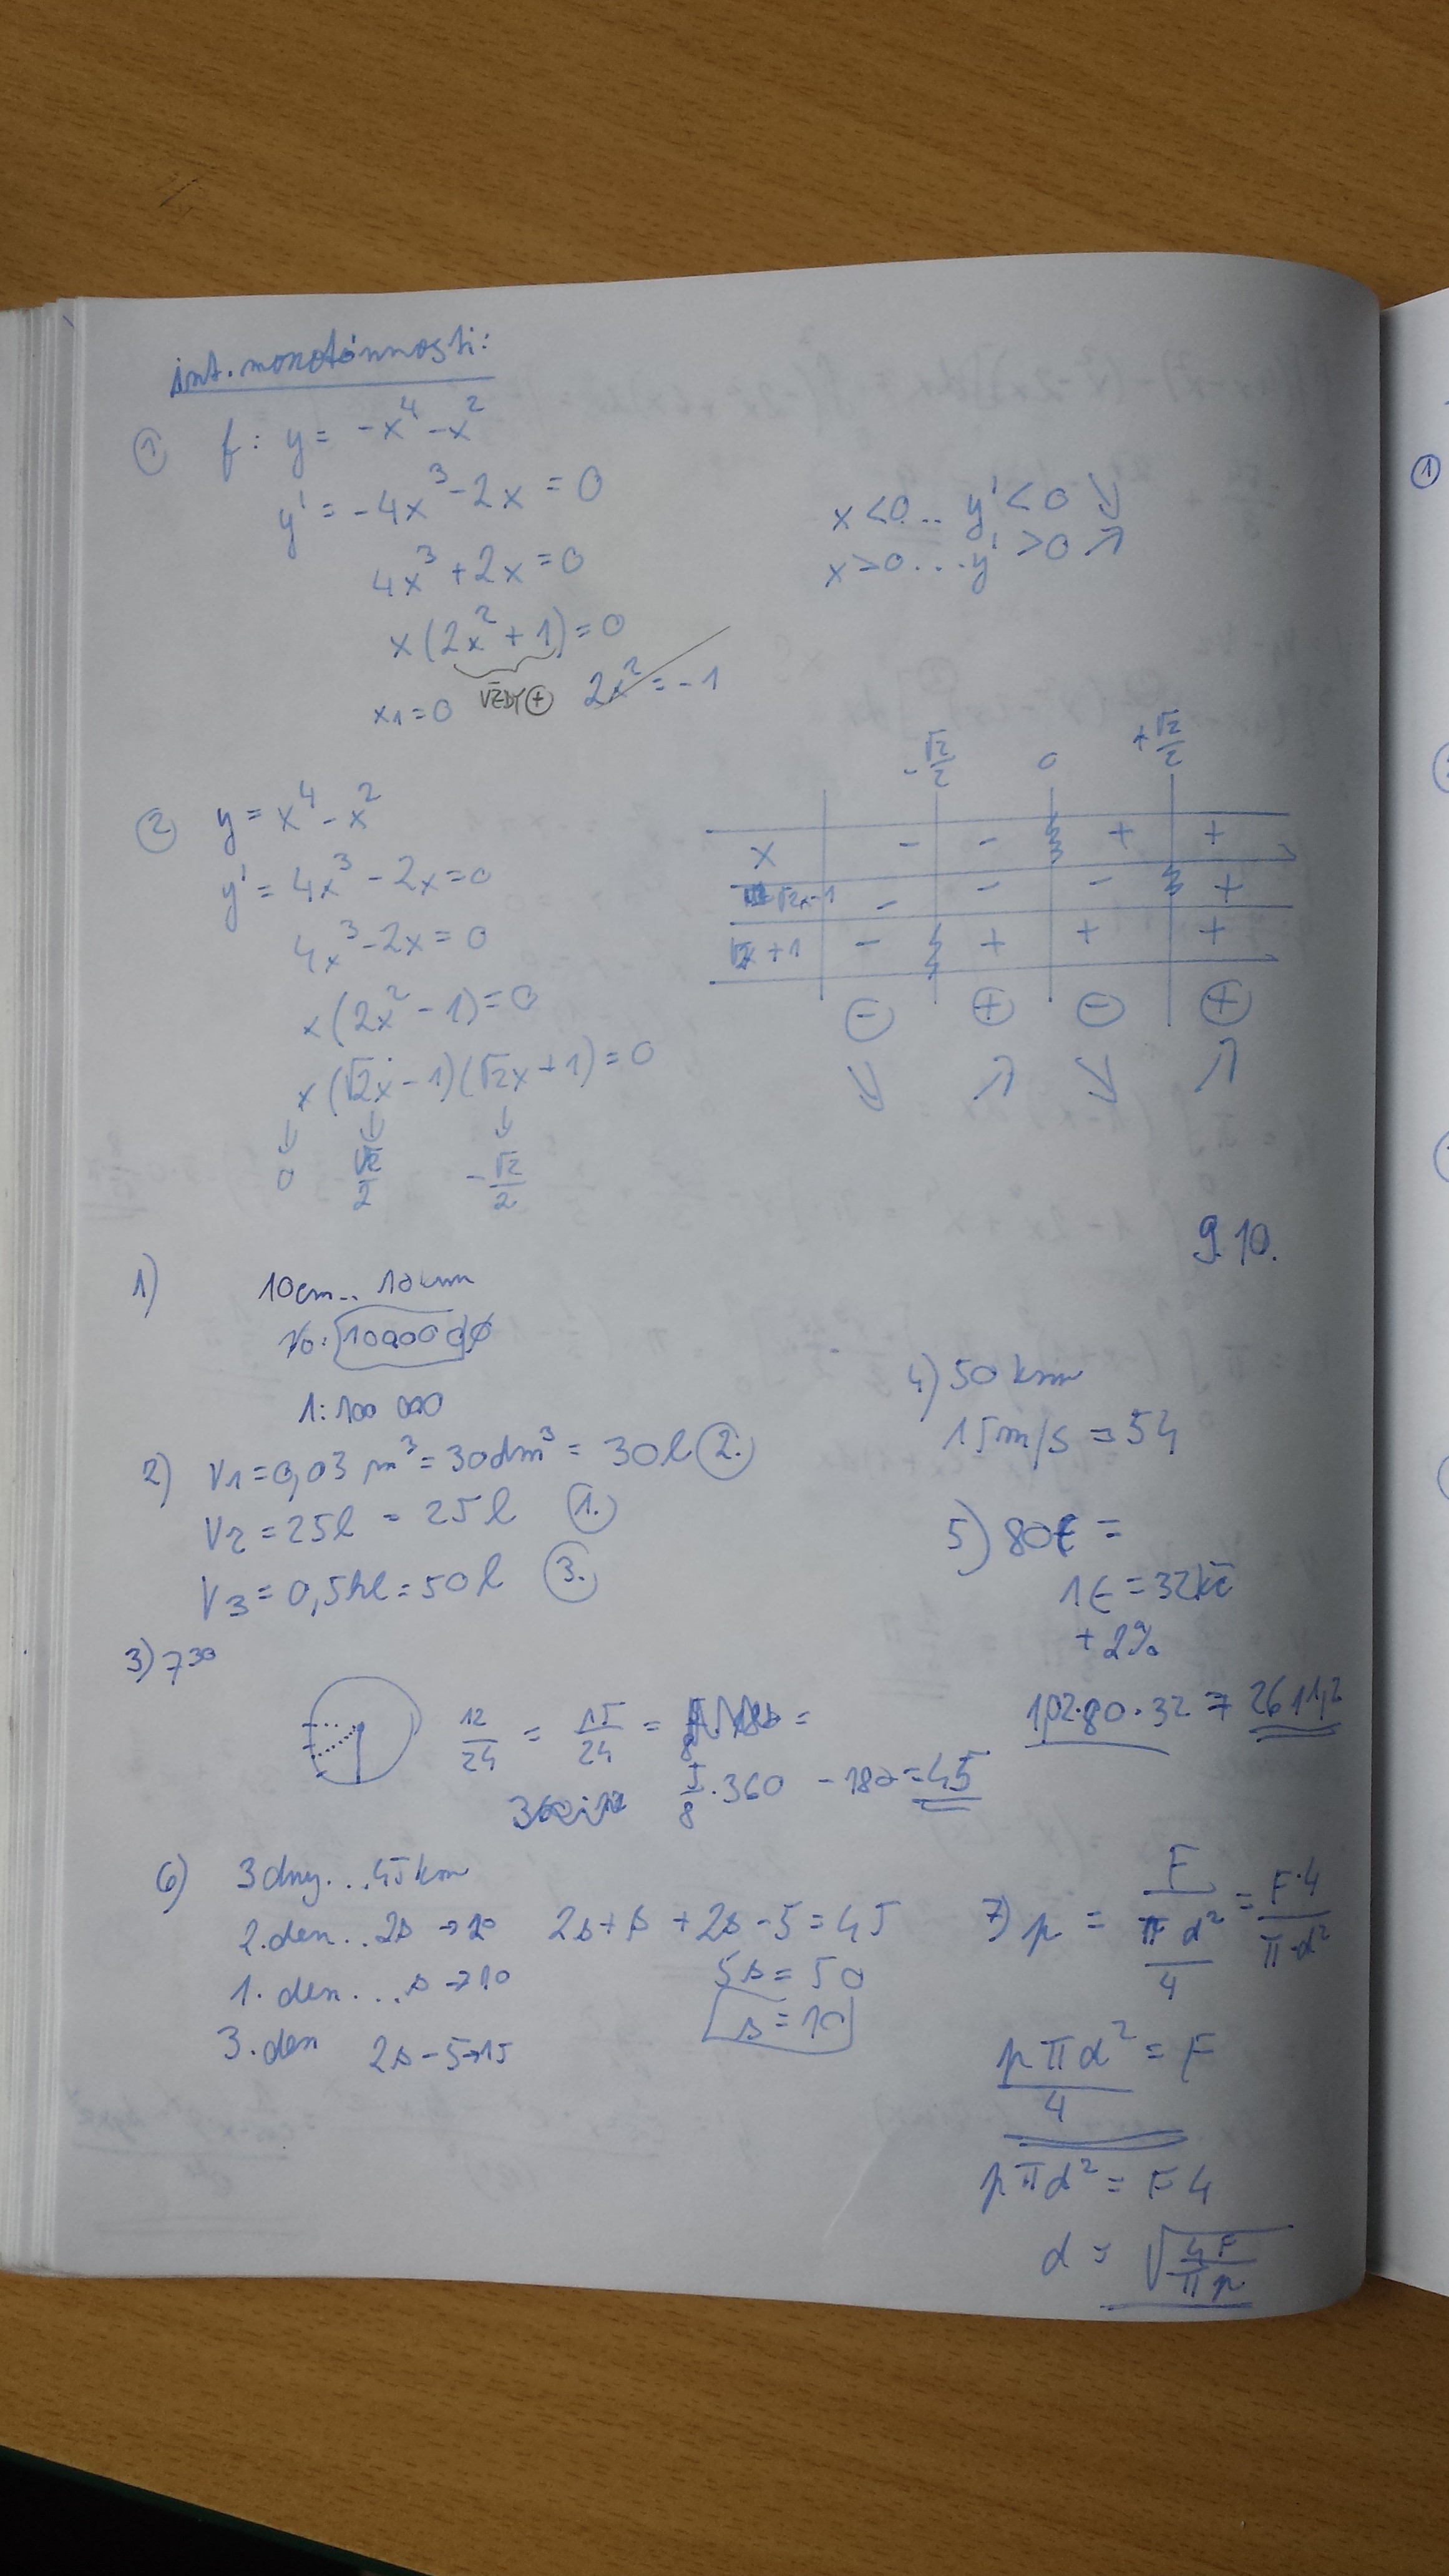 int. monotónnosti:
① f: y = -x⁴ - x²
y' = -4x³ - 2x = 0
4x³ + 2x = 0
x(2x² + 1) = 0
x₁ = 0 VŽDY ⊕ 2x² = -1
x < 0 ... y' < 0 ↘
x > 0 ... y' > 0 ↗
② y = x⁴ - x²
y' = 4x³ - 2x = 0
4x³ - 2x = 0
x(2x² - 1) = 0
x(√2x - 1)(√2x + 1) = 0
↓ ↓ ↓
0 √2/2 -√2/2
-√2/2 0 +√2/2
x - - + +
√2x-1 - - - +
√2x+1 - + + +
⊖ ⊕ ⊖ ⊕
↘ ↗ ↘ ↗
9.10.
1) 10cm .. 10km
10 : 1000000
1:100 000
2) V1 = 0,03 m³ = 30dm³ = 30l 2.
V2 = 25l = 25l 1.
V3 = 0,5hl = 50l 3.
3) 7³⁰
12/24 = 15/24 =
5/8 · 360 - 180 = 45
4) 50 km
15m/s = 54
5) 80€ =
1€ = 32kč
+ 2%
1,02·80·32 = 2611,2
6) 3 dny ... 45km
2. den .. 2s → 20 2s + s + 2s - 5 = 45
1. den ... s → 10 5s = 50
3. den 2s - 5 → 15 s = 10
7) p = F/(πd²/4) = F·4/π·d²
pπd²/4 = F
pπd² = F4
d = √(4F/πp)
①